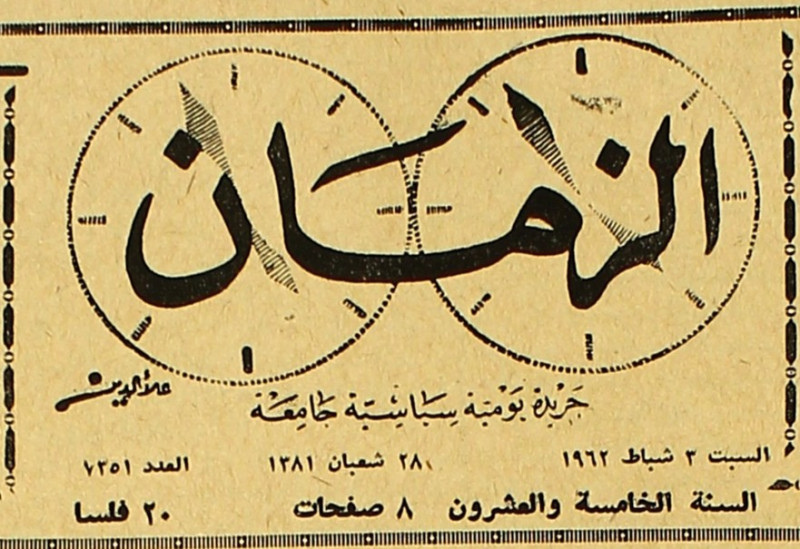 الزمان
علاء الدين
جريدة يومية سياسية جامعة
السبت ٣ شباط ١٩٦٢ ٢٨ شعبان ١٣٨١ العدد ٧٣٥١
السنة الخامسة والعشرون ٨ صفحات ٢٠ فلسا